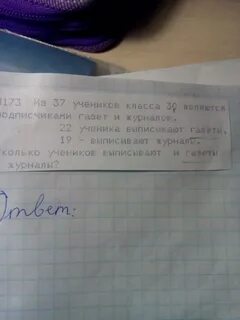 173 Из 37 учеников класса 30 являются
одписчиками газет и журналов.
22 ученика выписывают газеты,
19 - выписывают журналы.
колько учеников выписывают и газеты
журналы?
Ответ: